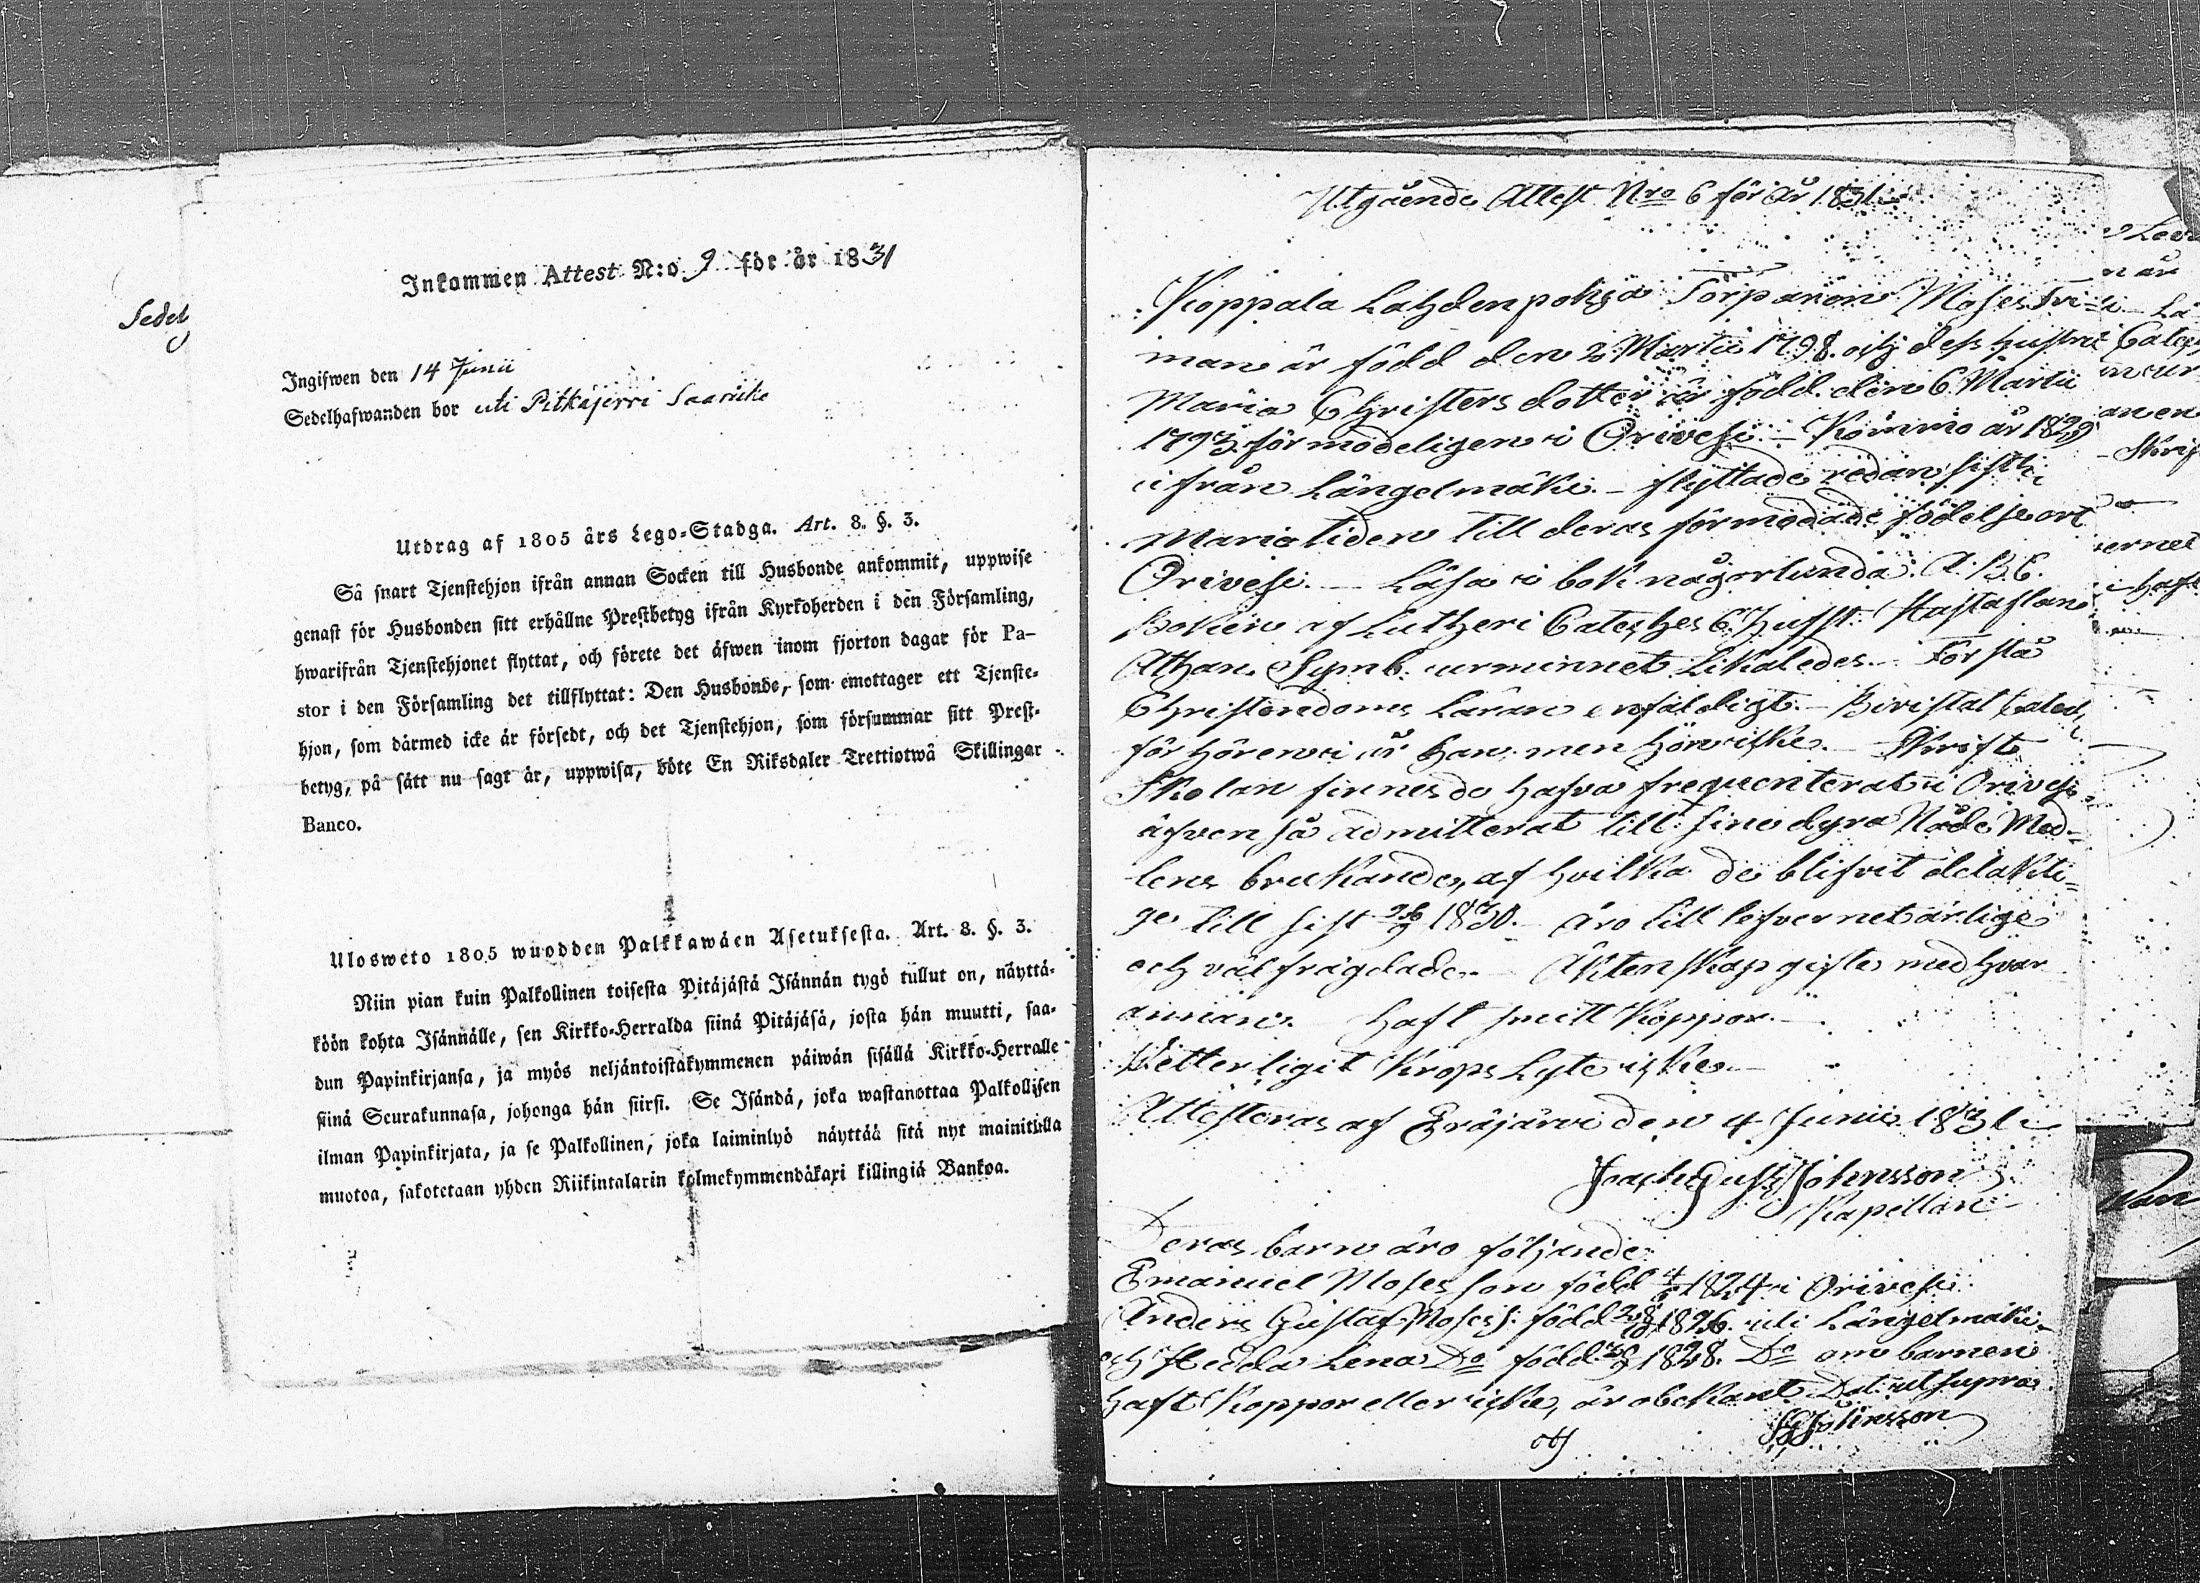 Sedel
Inkommen Attest N:o 9 för år 1831
Ingifwen den 14 Junii
Sedelhafwanden bor uti Pitkäjerri
Utdrag af 1805 års Lego-Stadga. Art. 8. §. 3.
Så snart Tjenstehjon ifrån annan Socken till Husbonde ankommit, uppwise
genast för Husbonden sitt erhållne Prestbetyg ifrån Kyrkoherden i den Församling,
hwarifrån Tjenstehjonet flyttat, och förete det äfwen inom fjorton dagar för Pa-
stor i den Församling det tillflyttat: Den Husbonde, som emottager ett Tjenste-
hjon, som dårmed icke är försedt, och det Tjenstehjon, som försummar sitt Prest-
betyg, på sätt nu sagt är, uppwisa, böte En Riksdaler Trettiotwå Skillingar
Banco.
Ulosweto 1805 wuodden Palkkawäen Asetuksesta. Art. 8. §. 3.
Niin pian kuin Palkollinen toisesta Pitäjästä Isännän tygö tullut on, näyttä-
köön kohta Isännälle, sen Kirkko-Herralda siinä Pitäjäsä, josta hän muutti, saa-
dun Papinkirjansa, ja myös neljäntoistakymmenen päiwän sisällä Kirkko-Herralle
siinä Seurakunnasa, johonga hän siirsi. Se Isändä, joka wastanottaa Palkollisen
ilman Papinkirjata, ja se Palkollinen, joka laiminlyö näyttää sitä nyt mainitulla
muotoa, sakotetaan yhden Riikintalarin kolmekymmendäkaxi killingiä Bankoa.
Utgående Attest Nro 6 för år 1831
Koppala Lahdenpohja Torparen Moses
man är född den 2 Martii 1798. och dess hustru
Maria Christersdotter är född den 6 Martii
1793 förmodeligen i Orivesi. Kommo år 1829
ifrån Längelmäki. – flyttade redan sistl:
Mariæ tiden till deras förmodade födelseort
Orivesi. – Läsa i bok någorlunda. A.B.C.
Boken af Lutheri Cateches C. Hustaflan
Athan. Symb. urminnet likaledes. – Förstå
Christendoms Läran enfaldigt. – Bivistat Catech.
förhören är han, men hon icke. – Skrift
Skolan finnes de hafva frequenterat i Orivesi
äfven så admitterat till sine dyra Nåde Med-
lens brukande, af hvilka de blifvit delakti-
ge till sist 1830. – Äro till lefvernet ärlige
och väl frägdade. – Äktenskap gifte med hvar
annan. Haft Koppor. –
Vetterligit Krops Lyte icke. –
Attesteras af Eräjärvi den 4 Junii 1831
Joach Gust Johnsson
Kapellan
Deras barn äro följande
Emanuel Moses son född 1824 i Orivesi
Anders Gustaf Moses S. född 1826 uti Längelmäki
och Hedda Lena Do född 1828. Do om barnen
haft Koppor eller icke, är obekant. Dat. ut supra
JGJohnsson